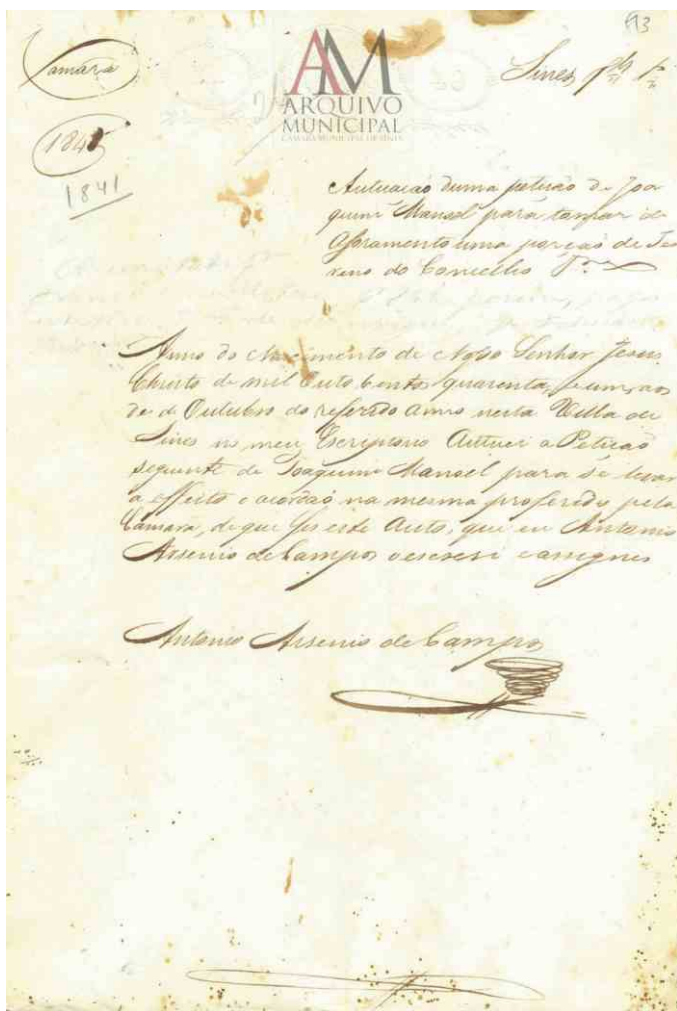 93
Camara
Sines
1841
1841
AM
ARQUIVO
MUNICIPAL
CÂMARA MUNICIPAL DE SINES
Autuacão duma peticão de Joa
quim Manoel para tomar de
Aforamento uma porcão de Ter
reno do Concelho
Anno do Nascimento de Nosso Senhor Jesus
Christo de mil outo centos quarenta, e um, aos
de Outubro do referedo anno nesta Villa de
Sines no meu Escriptorio Autuei a Peticão
seguente de Joaquim Manoel para se levar
a effeito o acordão na mesma proferedo pela
Camara, de que fis este Auto, que eu Antonio
Arsenio de Campos o escrevi e assignei
Antonio Arsenio de Campos